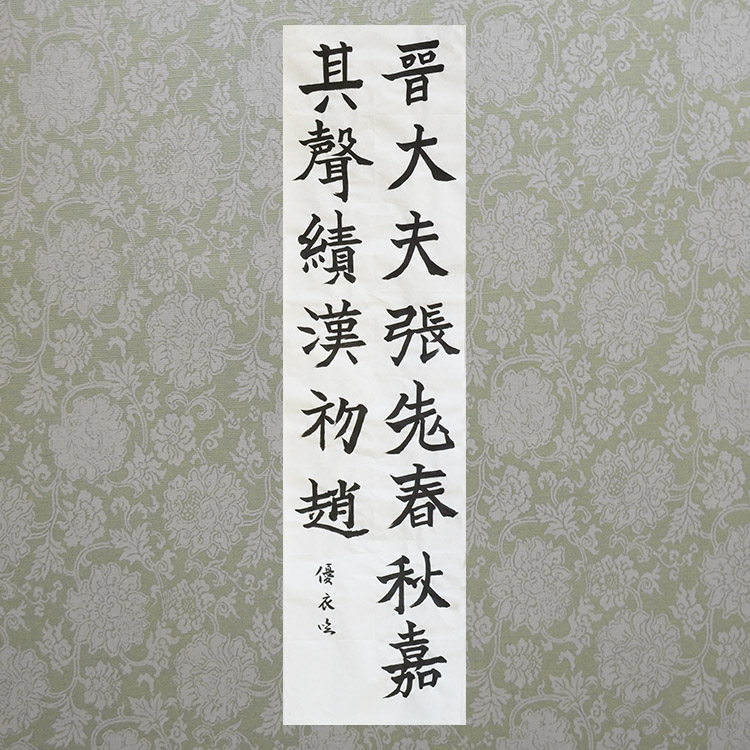 晉大夫張老春秋嘉
其聲績漢初趙
優衣